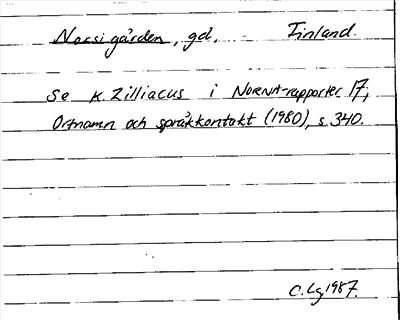 Noksigården, gd, Finland.
se K. Zilliacus i NORNA-rapporter 17;
Ortnamn och språkkontakt (1980), s. 340.
C. Lg 1987.